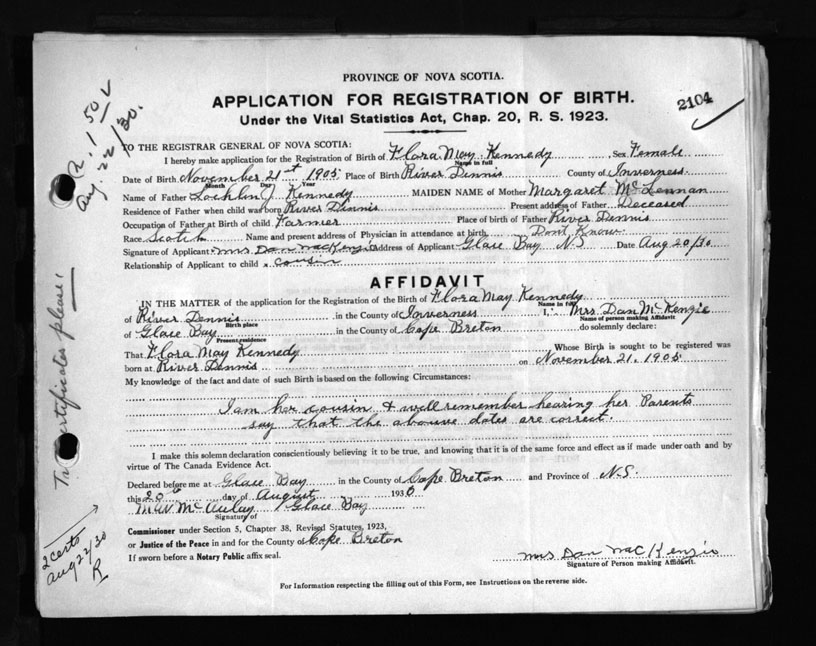 PROVINCE OF NOVA SCOTIA.
APPLICATION FOR REGISTRATION OF BIRTH.
2104
Under the Vital Statistics Act, Chap. 20, R. S. 1923.
R. 1 50
Aug. 22/30.
TO THE REGISTRAR GENERAL OF NOVA SCOTIA:
I hereby make application for the Registration of Birth of Flora May Kennedy Sex Female
Name in full
Date of Birth November 21st 1905 Place of Birth River Dennis County of Inverness
Month Day Year
Name of Father Lochlin J. Kennedy MAIDEN NAME of Mother Margaret McLennan
Residence of Father when child was born River Dinnis Present address of Father Deceased
Occupation of Father at Birth of child Farmer Place of birth of Father River Dennis
Race Scotch Name and present address of Physician in attendance at birth Dont Know
Signature of Applicant Mrs Dan MacKenzie Address of Applicant Glace Bay NS Date Aug 20/30
Relationship of Applicant to child a cousin
AFFIDAVIT
IN THE MATTER of the application for the Registration of the Birth of Flora May Kennedy
Name in full
of River Dennis in the County of Inverness I, Mrs. Dan McKenzie
Birth place Name of person making Affidavit
of Glace Bay in the County of Cape Breton do solemnly declare:
Present residence
That Flora May Kennedy Whose Birth is sought to be registered was
born at River Dinnis on November 21, 1905
My knowledge of the fact and date of such Birth is based on the following Circumstances:
I am her cousin & well remember hearing her Parents
say that the abouve dates are correct.
I make this solemn declaration conscientiously believing it to be true, and knowing that it is of the same force and effect as if made under oath and by
virtue of The Canada Evidence Act.
Declared before me at Glace Bay in the County of Cape Breton and Province of N.S.
this 20th day of August 1930
M W McAulay Glace Bay
Signature of
Commissioner under Section 5, Chapter 38, Revised Statutes, 1923,
or Justice of the Peace in and for the County of Cape Breton
If sworn before a Notary Public affix seal.
Mrs Dan MacKenzie
Signature of Person making Affidavit.
For Information respecting the filling out of this Form, see Instructions on the reverse side.
Certificates please!
2 certs
Aug 22/30
R